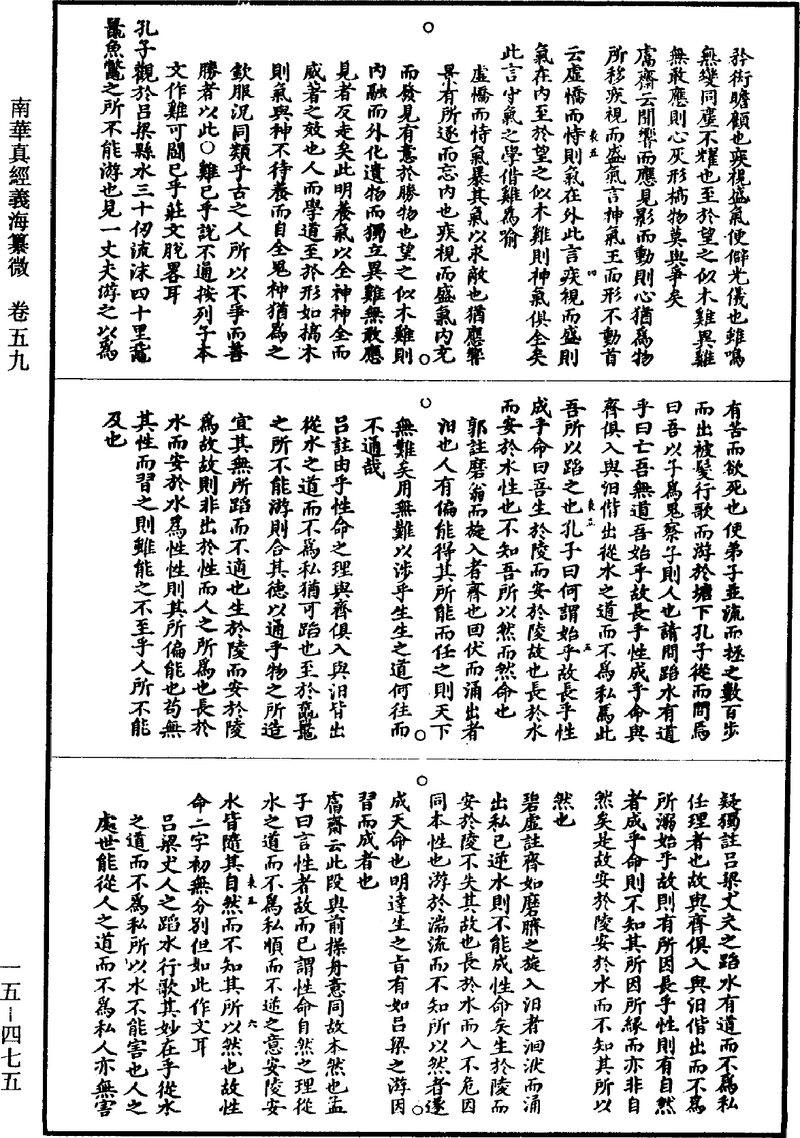 南華真經義海纂微 卷五九
一五－四七五
矜衒瞻顧也疾視盛氣使僻光儀也雖鳴
無變同塵不耀也至於望之似木雞異雞
無敢應則心灰形槁物莫與爭矣
鬳齋云聞響而應見影而動則心猶為物
所移疾視而盛氣言神氣王而形不動首
云虛憍而恃則氣在外此言疾視而盛則
氣在內至於望之似木雞則神氣俱全矣
此言守氣之學借雞為喻
虛憍而恃氣暴其氣以求敵也猶應響
景有所逐而忘內也疾視而盛氣內充
而發見有意於勝物也望之似木雞則
內融而外化遺物而獨立異雞無敢應
見者反走矣此明養氣以全神神全而
威著之效也人而學道至於形如槁木
則氣與神不待養而自全鬼神猶為之
欽服況同類乎古之人所以不爭而善
勝者以此○雞已乎說不通按列子本
文作雞可鬪已乎莊文脫畧耳
孔子觀於呂梁縣水三十仞流沫四十里黿
鼉魚鱉之所不能游也見一丈夫游之以為
有苦而欲死也使弟子並流而拯之數百步
而出被髮行歌而游於塘下孔子從而問焉
曰吾以子為鬼察子則人也請問蹈水有道
乎曰亡吾無道吾始乎故長乎性成乎命與
齊俱入與汨偕出從水之道而不為私焉此
吾所以蹈之也孔子曰何謂始乎故長乎性
成乎命曰吾生於陵而安於陵故也長於水
而安於水性也不知吾所以然而然命也
郭註磨翁而旋入者齊也回伏而涌出者
汨也人有偏能得其所能而任之則天下
無難矣用無難以涉乎生生之道何往而
不通哉
呂註由乎性命之理與齊俱入與汨皆出
從水之道而不為私猶可蹈也至於黿鼉
之所不能游則合其德以通乎物之所造
宜其無所蹈而不適也生於陵而安於陵
為故故則非出於性而人之所為也長於
水而安於水為性性則其所偏能也苟無
其性而習之則雖能之不至乎人所不能
及也
疑獨註呂梁丈夫之蹈水有道而不為私
任理者也故與齊俱入與汨偕出而不為
所溺始乎故則有所因長乎性則有自然
者成乎命則不知其所因所緣而亦非自
然矣是故安於陵安於水而不知其所以
然也
碧虛註齊如磨臍之旋入汨者洄洑而涌
出私己逆水則不能成性命矣生於陵而
安於陵不失其故也長於水而入不危因
同本性也游於湍流而不知所以然者遂
成天命也明達生之旨有如呂梁之游因
習而成者也
鬳齋云此段與前操舟意同故本然也孟
子曰言性者故而已謂性命自然之理從
水之道而不為私順而不逆之意安陵安
水皆隨其自然而不知其所以然也故性
命二字初無分別但如此作文耳
呂梁丈人之蹈水行歌其妙在乎從水
之道而不為私所以水不能害也人之
處世能從人之道而不為私人亦無害